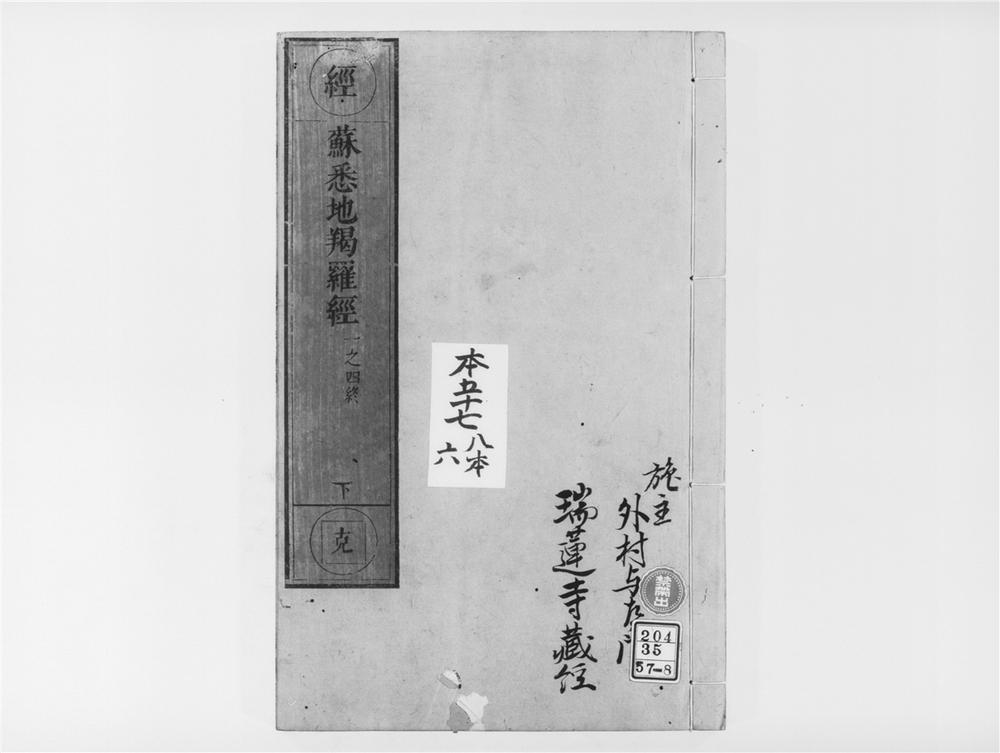 經
蘇悉地羯羅經 一之四終
下
克
本五十七
八本
六
施主
外村与左
瑞蓮寺藏経
禁帶出
204
35
57-8